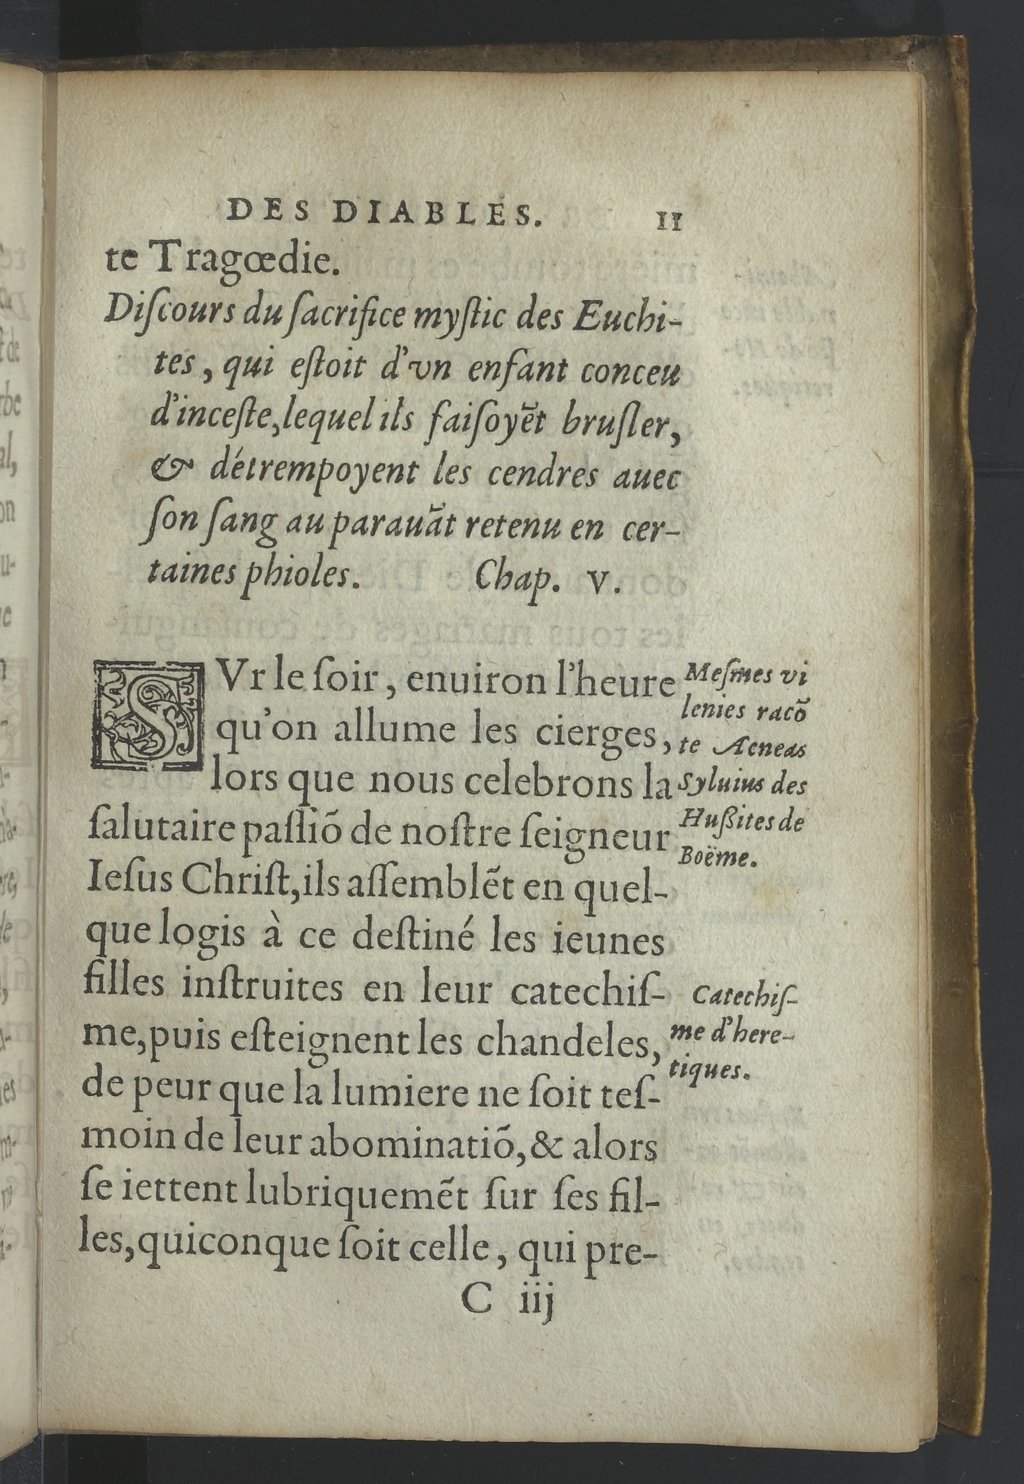 DES DIABLES. 11
te Tragœdie.
Diſcours du ſacrifice myſtic des Euchi-
tes, qui eſtoit d'vn enfant conceu
d'inceſte, lequel ils faiſoyẽt bruſler,
& détrempoyent les cendres auec
ſon ſang au parauãt retenu en cer-
taines phioles. Chap. V.
SVr le ſoir, enuiron l'heure
qu'on allume les cierges,
lors que nous celebrons la
ſalutaire paſſiõ de noſtre ſeigneur
Ieſus Chriſt, ils aſſemblẽt en quel-
que logis à ce deſtiné les ieunes
filles inſtruites en leur catechiſ-
me, puis eſteignent les chandeles,
de peur que la lumiere ne ſoit teſ-
moin de leur abominatiõ, & alors
ſe iettent lubriquemẽt ſur ſes fil-
les, quiconque ſoit celle, qui pre-
Meſmes vi
lenies racõ
te Aeneas
Syluius des
Huſsites de
Boëme.
Catechiſ-
me d'here-
tiques.
C iij